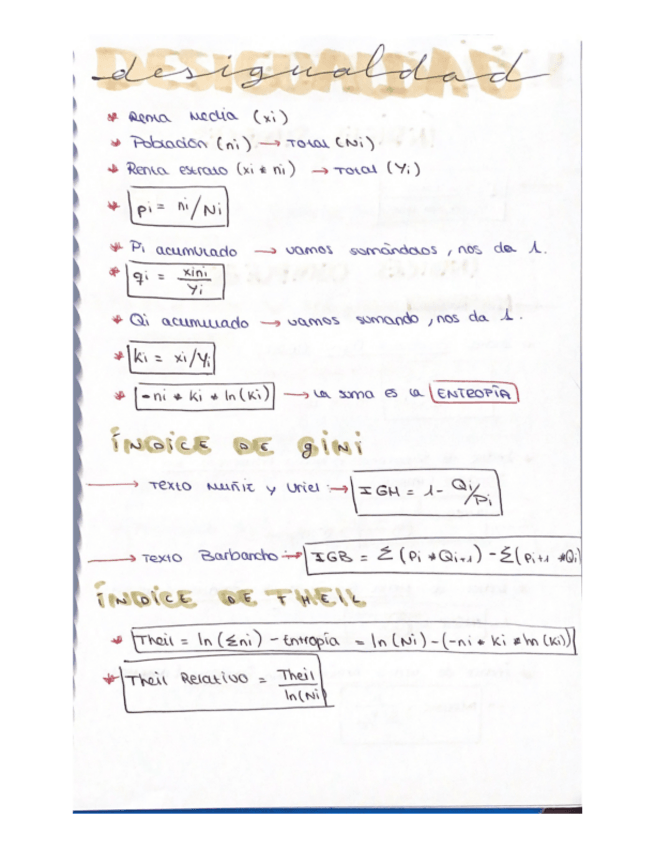 desigualdad
* Renta Media (xi)
* Población (ni) → Total (Ni)
* Renta estrato (xi * ni) → Total (Yi)
* pi = ni/Ni
* Pi acumulado → vamos sumándolos, nos da 1.
* qi = xini/Yi
* Qi acumulado → vamos sumando, nos da 1.
* Ki = xi/Yi
* -ni * Ki * ln(Ki) → La suma es la ENTROPÍA
ÍNDICE DE GINI
→ Texto Muñiz y Uriel → IGM = 1 - Qi/Pi
→ Texto Barbancho → IGB = Σ(Pi * Qi+1) - Σ(Pi+1 * Qi)
ÍNDICE DE THEIL
* Theil = ln(Σni) - Entropía = ln(Ni) - (-ni * Ki * ln(Ki))
* Theil Relativo = Theil/ln(Ni)